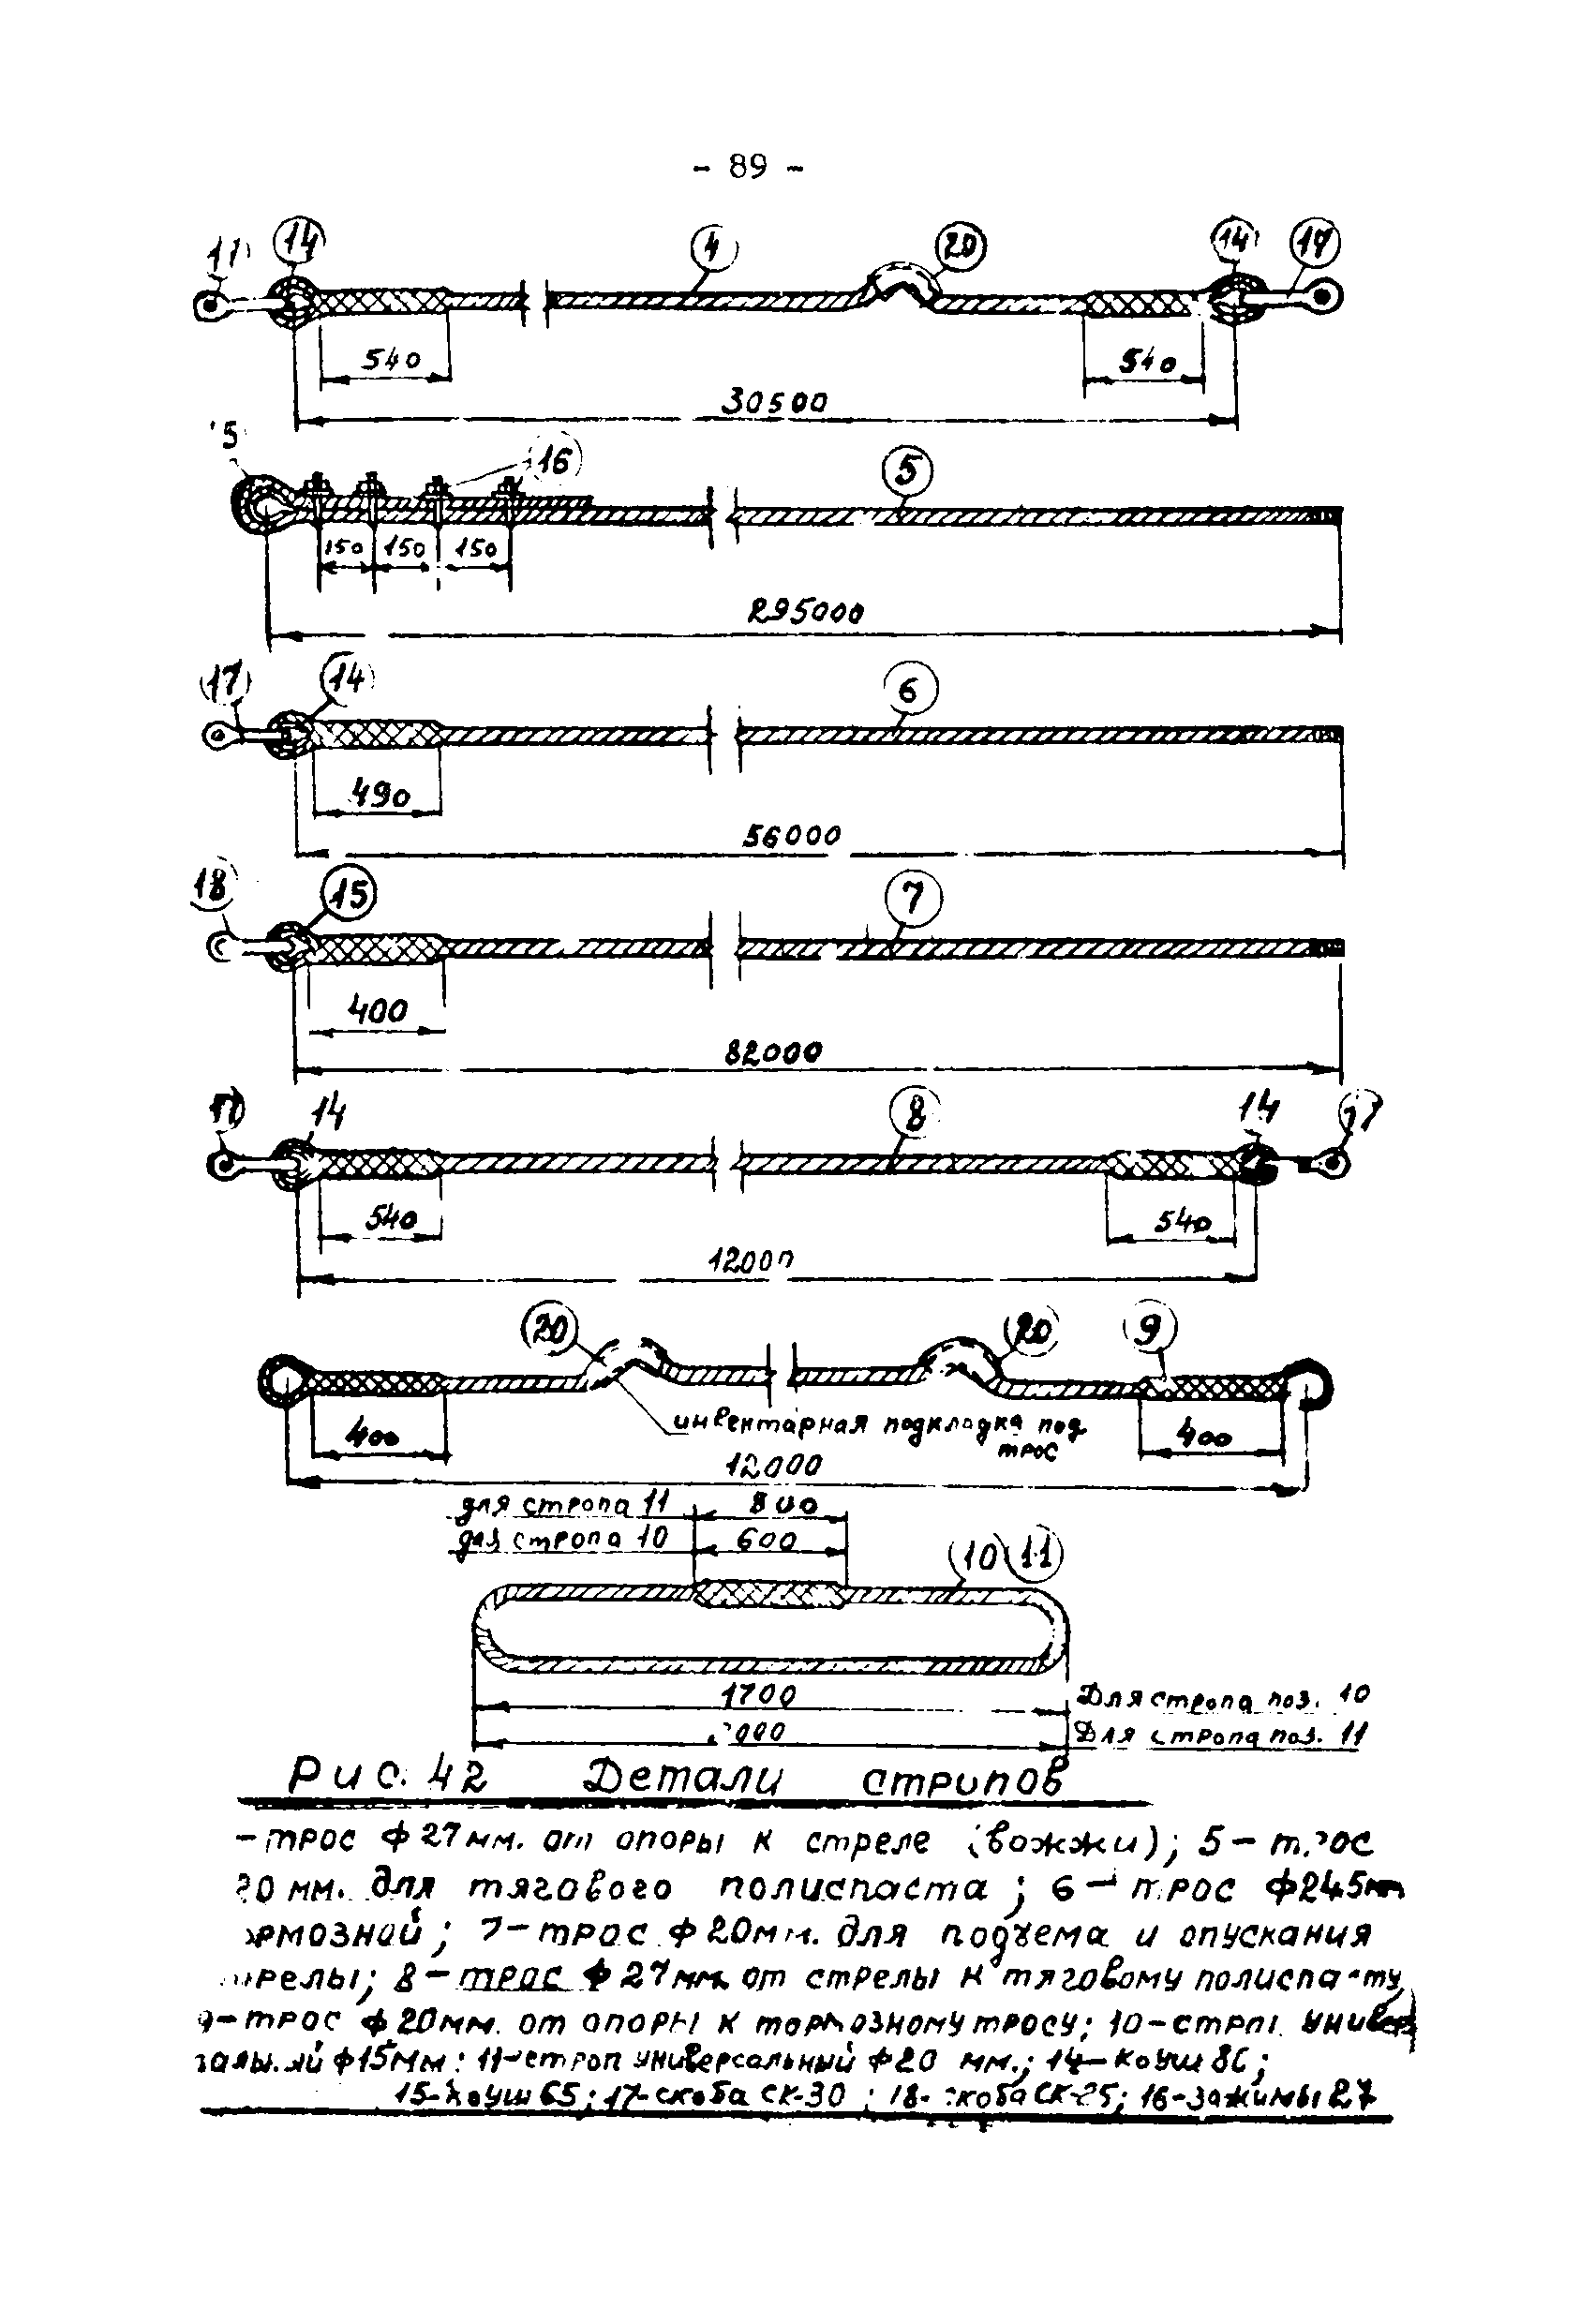 - 89 -
14 4 20 14 17
540 540
30500
16 5
150 150 150
295000
17 14 6
490
56000
18 15 7
400
82000
14 8 14
540 540
20 20 9
инвентарная подкладка под
трос
400 400
12000
для стропа 11 800
для стропа 10 600
10 11
1700 Для стропа поз. 10
Для стропа поз. 11
Рис. 42 Детали стропов
- трос ф 27мм. от опоры к стреле (вожжи); 5 -
мм. для тягового полиспаста; 6 - трос
7 - трос ф 20мм. для подъема и опускания
8 - трос ф 27мм от стрелы к тяговому полиспасту
9 - трос ф 20мм. от опоры к тормозному тросу; 10 -
ф 15мм; 11 - строп универсальный ф 20 мм.; 14 - коуш
15 - коуш 65; 17 - скоба СК-30; 18 - 16 - зажимы 27